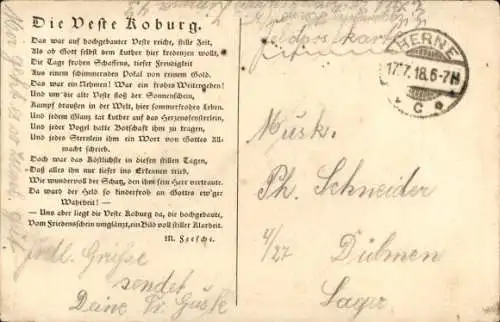 Die Veste Koburg.
Das war auf hochgebauter Veste reiche, stille Zeit,
Als ob Gott selbst dem Luther hier kredenzen wollt,
Die Tage frohen Schaffens, tiefer Freudigkeit
Aus einem schimmernden Pokal von reinem Gold.
Das war ein Nehmen! War ein frohes Weitergeben!
Und um die alte Veste floß der Sonnenschein,
Kampf draußen in der Welt, hier sommerfrohes Leben.
Und jedem Glanz tat Luther auf das Herzensfensterlein,
Und jeder Vogel hatte Botschaft ihm zu tragen,
Und jedes Sternlein ihm ein Wort von Gottes All-
macht schrieb.
Doch war das Köstlichste in diesen stillen Tagen,
Daß alles ihn nur tiefer ins Erkennen trieb,
Wie wundervoll der Schatz, den ihm sein Herr vertraute.
Da ward der Held so kinderfroh an Gottes ew'ger
Wahrheit! —
— Uns aber liegt die Veste Koburg da, die hochgebaute,
Vom Friedensschein umglänzt, ein Bild voll stiller Klarheit.
M. Feesche.
Herzl. Grüße
sendet
Deine Fr. Guste
Feldpostkarte
HERNE
17.7.18.6-7N
* C *
Musk.
Ph. Schneider
4/27 Dülmen
Lager